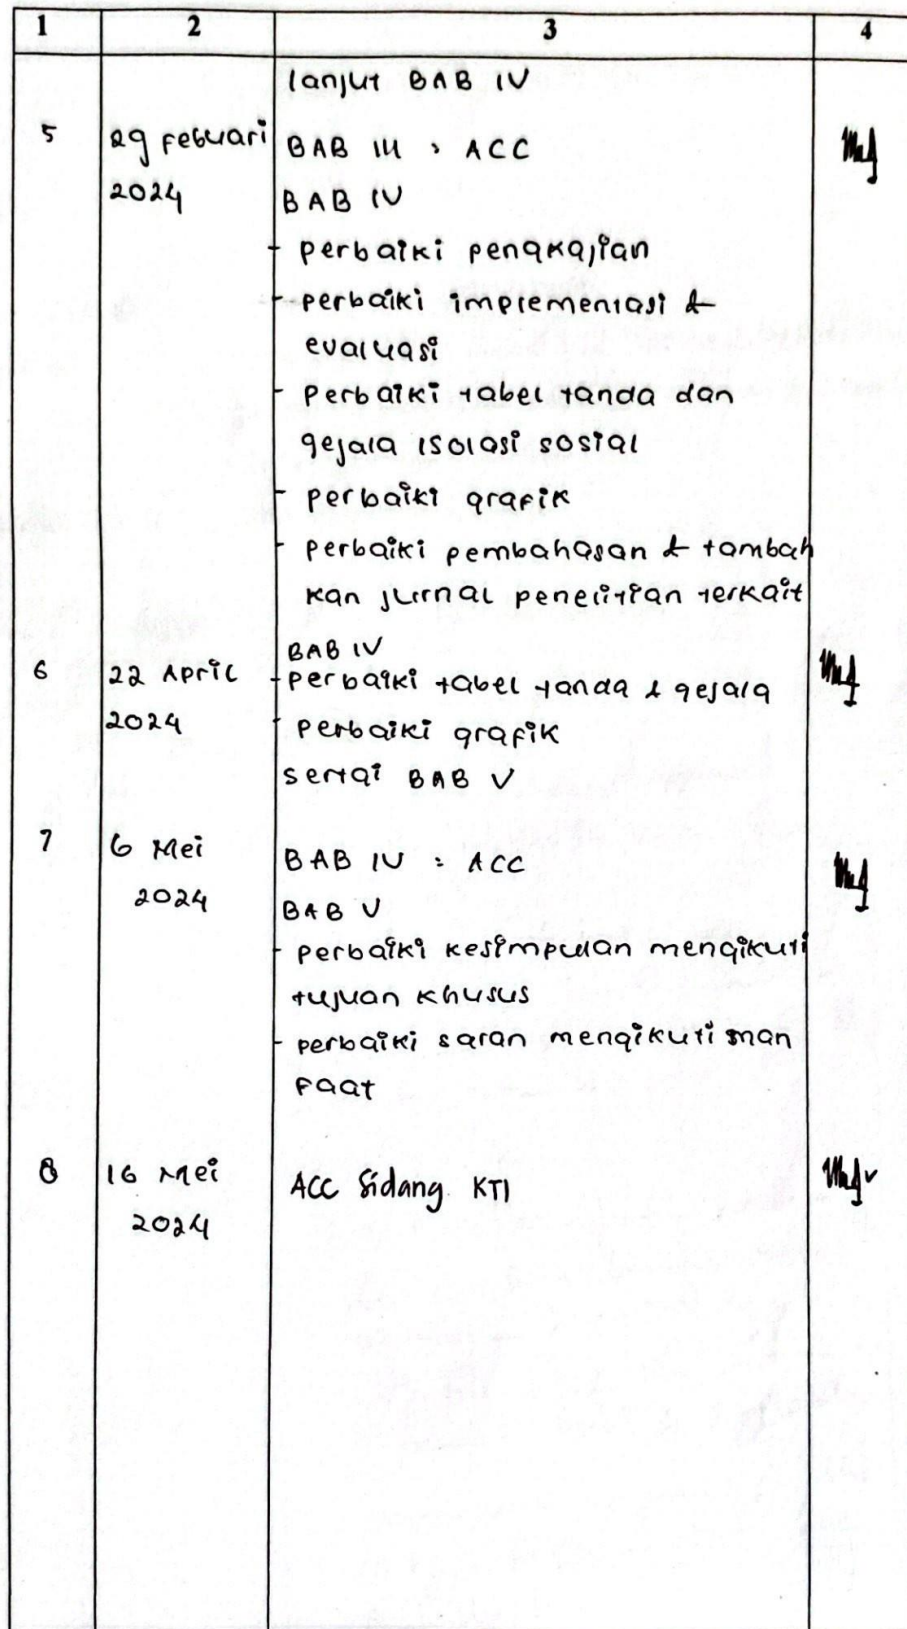 1 2 3 4
lanjut BAB IV
5 29 Febuari BAB III : ACC
2024 BAB IV
- perbaiki pengkajian
- perbaiki implementasi &
evaluasi
- perbaiki tabel tanda dan
gejala isolasi sosial
- perbaiki grafik
- perbaiki pembahasan & tambah
kan jurnal penelitian terkait
BAB IV
6 22 April - perbaiki tabel tanda & gejala
2024 - perbaiki grafik
sertai BAB V
7 6 Mei BAB IV : ACC
2024 BAB V
- perbaiki kesimpulan mengikuti
tujuan khusus
- perbaiki saran mengikuti man
faat
8 16 Mei ACC Sidang KTI
2024